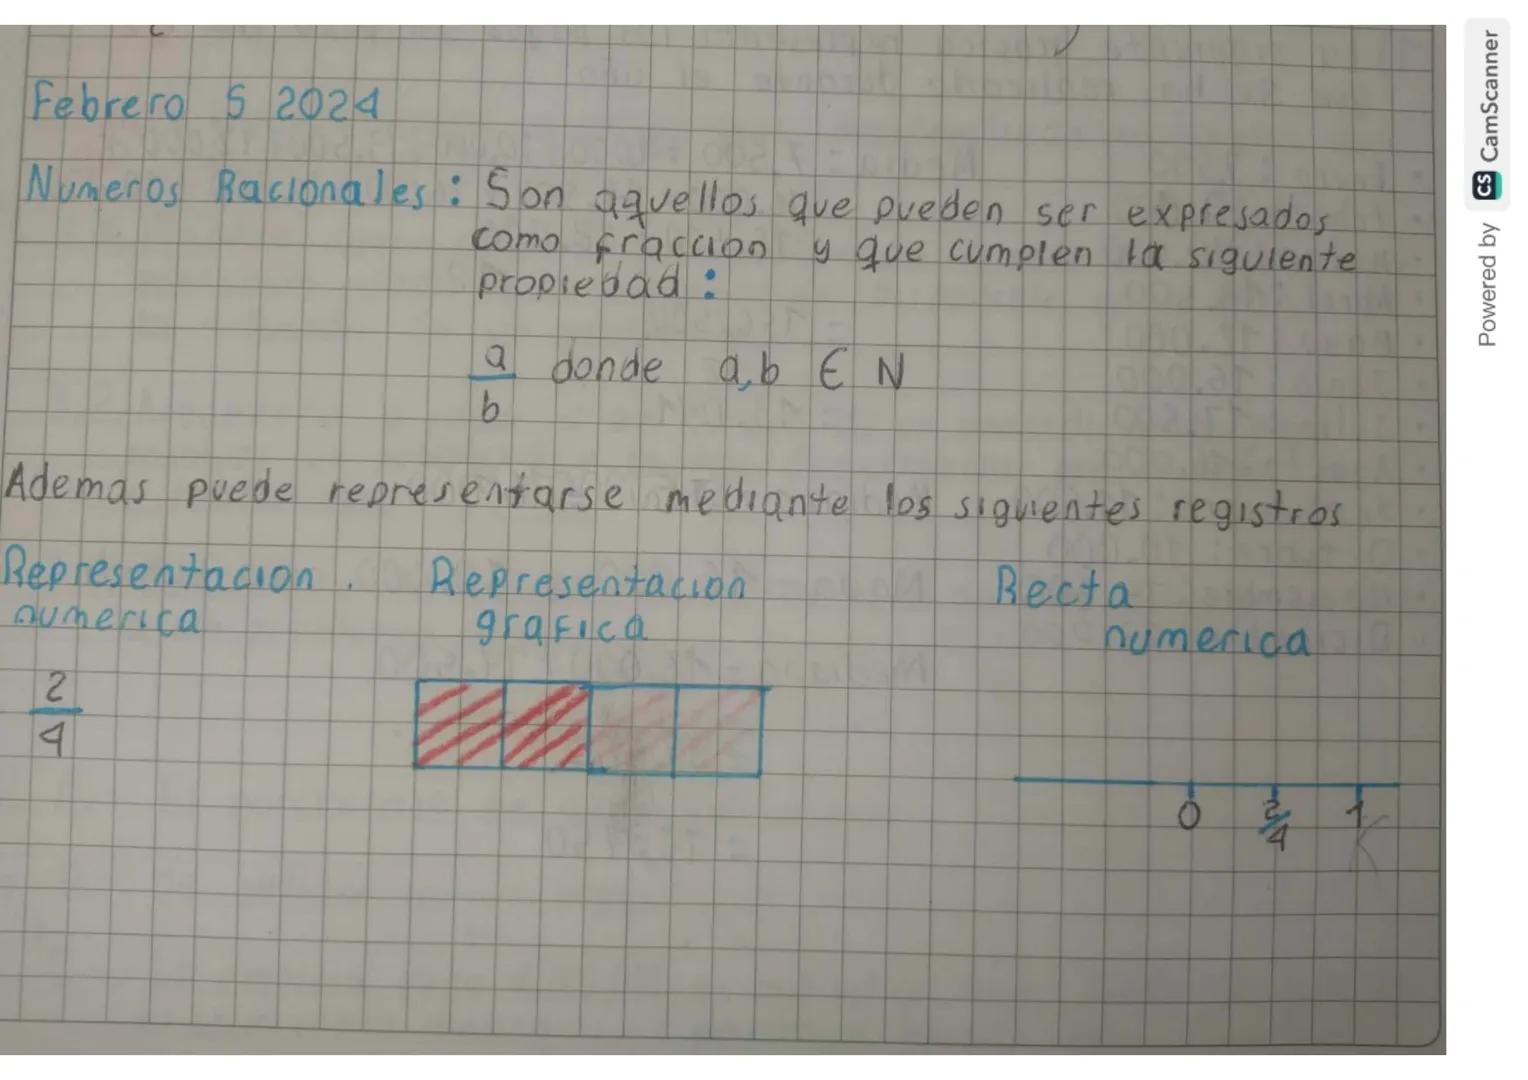 Febrero 5 2024
Numeros Racionales: Son aquellos que pueden ser expresados
como fraccion y que cumplen la siguiente
propiedad:
a
donde a,b ∈ N
b
Ademas puede representarse mediante los siguientes registros
Representacion. Representacion Recta
numerica grafica numerica
2
4
0 2/4 1
Powered by CS CamScanner